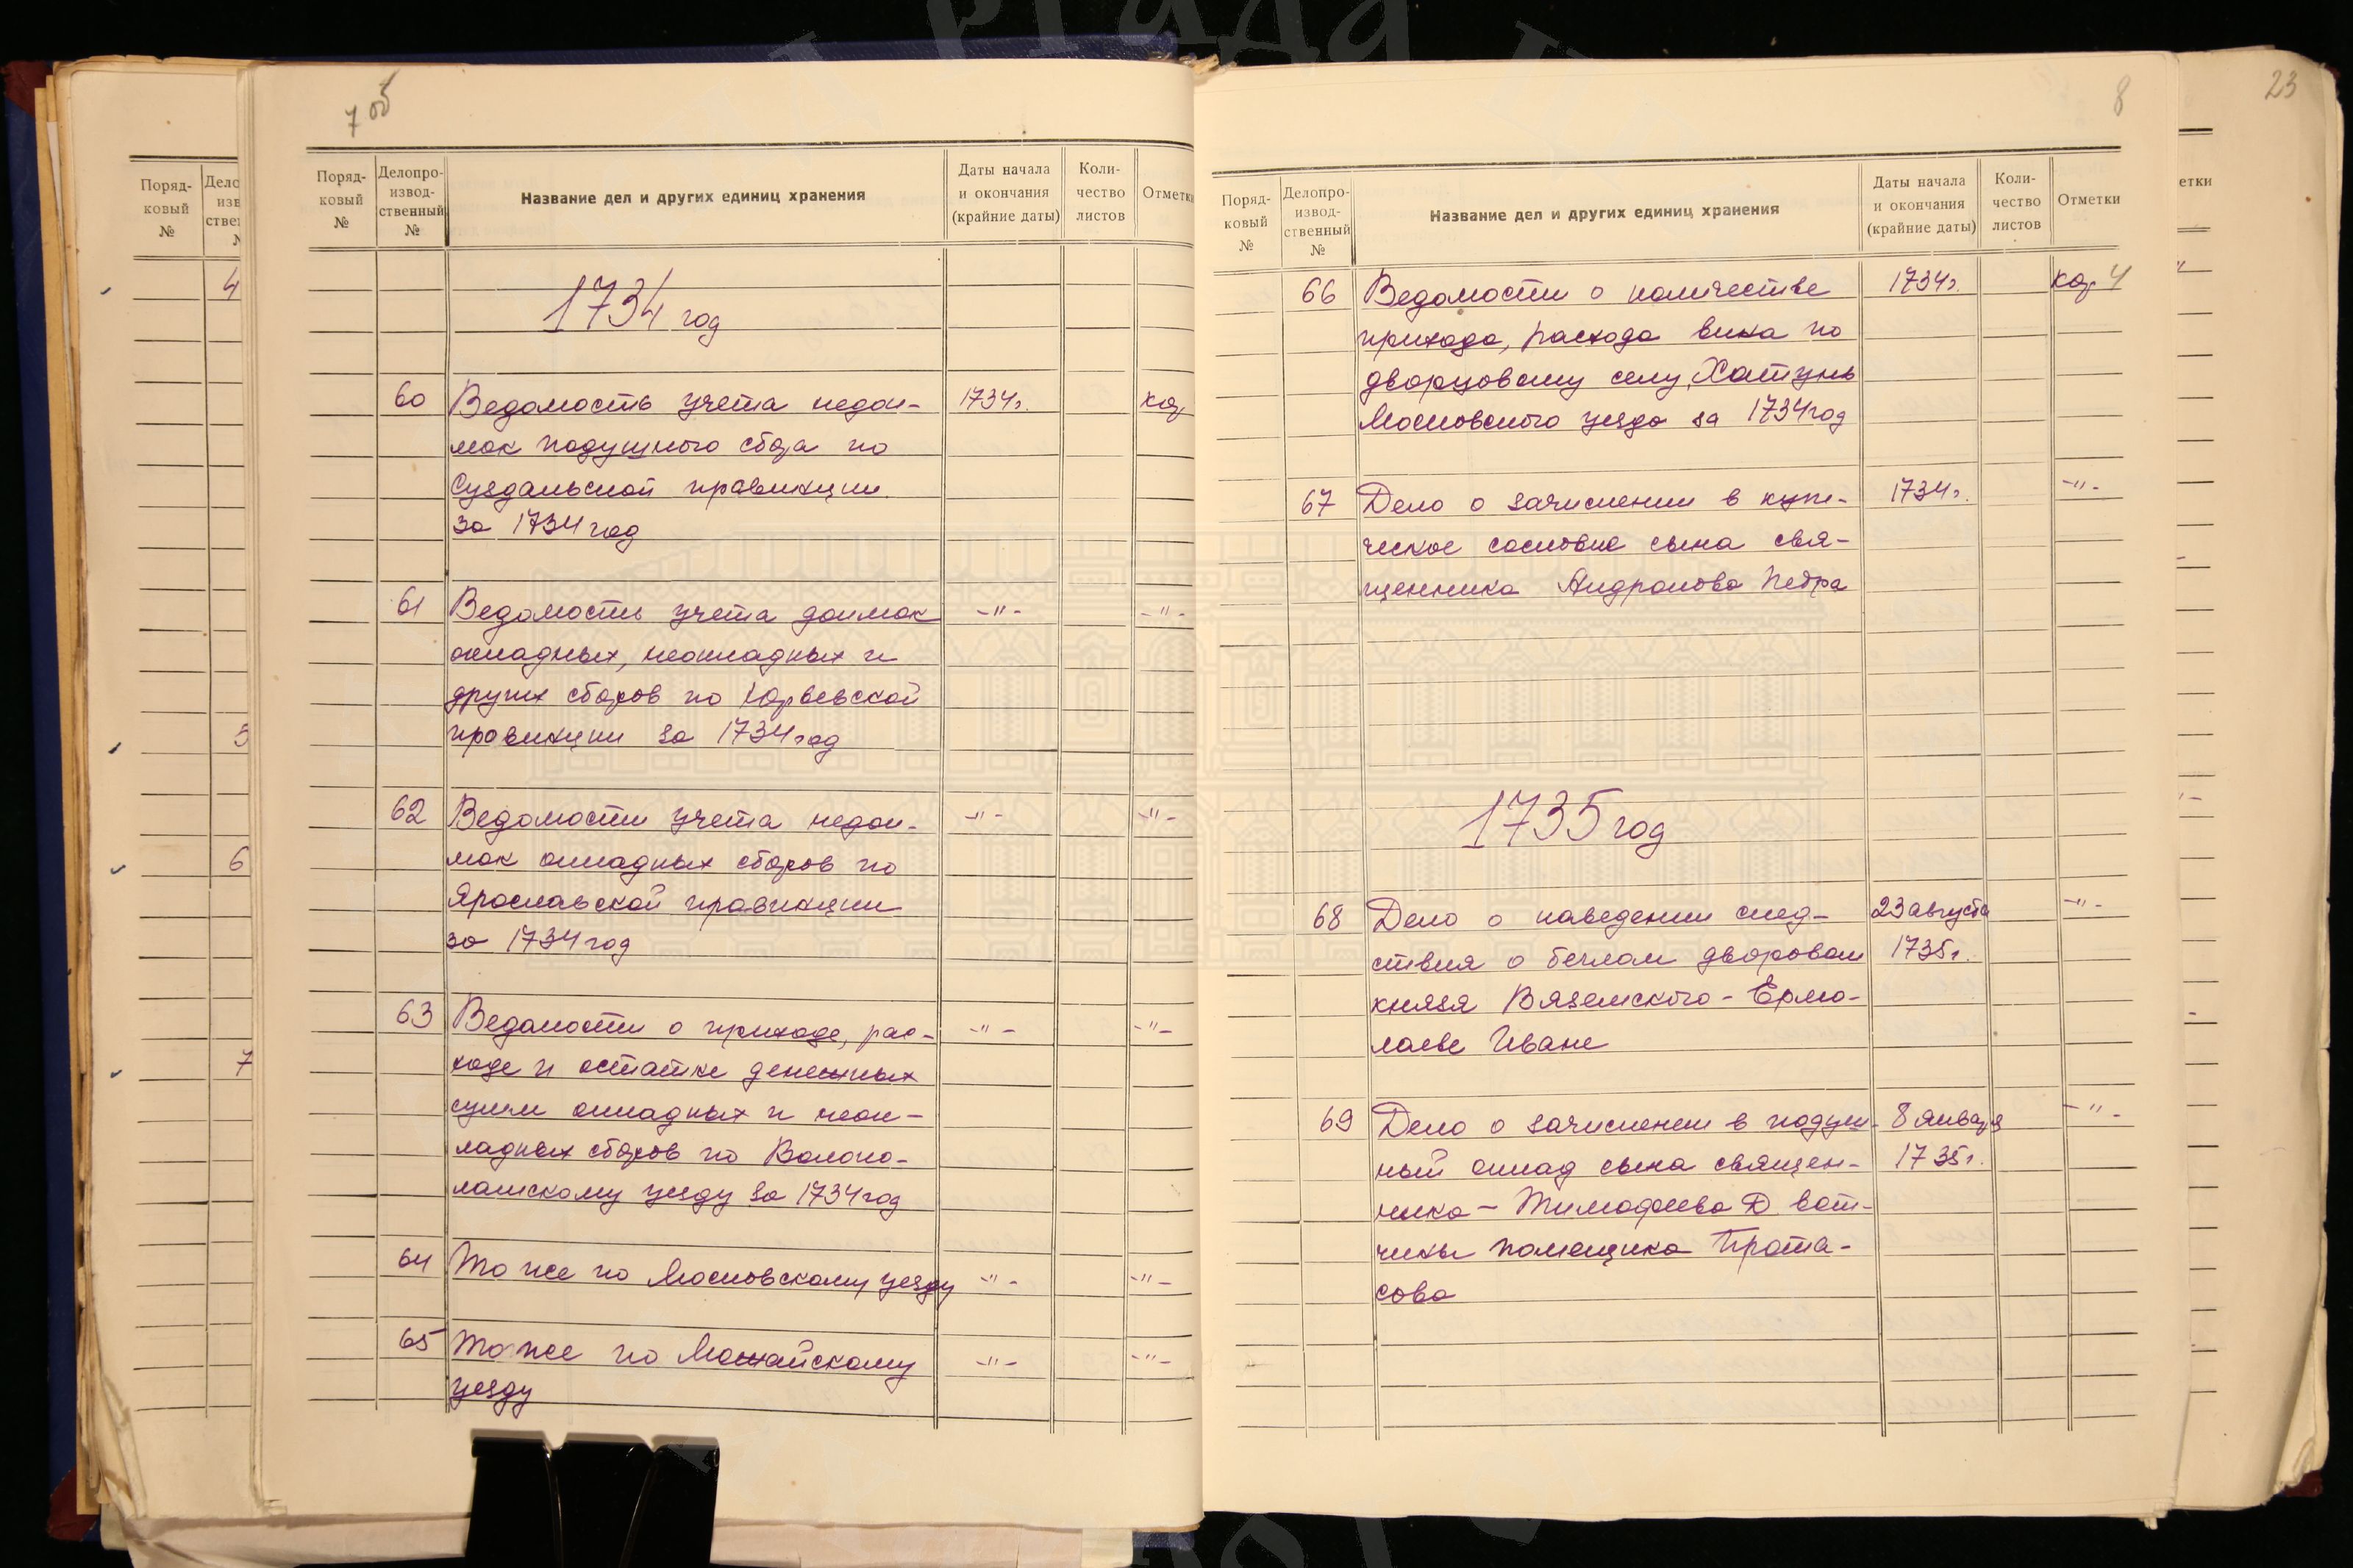 7 об
Поряд-
ковый
№
Делопро-
извод-
ственный
№
Название дел и других единиц хранения
Даты начала
и окончания
(крайние даты)
Коли-
чество
листов
Отметки
1734 год
60 Ведомость учета недои- 1734г. кор
мок подушного сбора по
Суздальской провинции
за 1734 год
61 Ведомость учета доимок -"- -"-
окладных, неокладных и
других сборов по Юрьевской
провинции за 1734 год
62 Ведомости учета недои- -"- -"-
мок окладных сборов по
Ярославской провинции
за 1734 год
63 Ведомости о приходе, рас- -"- -"-
ходе и остатке денежных
сумм окладных и неок-
ладных сборов по Волоко-
ламскому уезду за 1734 год
64 То же по Московскому уезду -"- -"-
65 То же по Можайскому -"- -"-
уезду
8
Поряд-
ковый
№
Делопро-
извод-
ственный
№
Название дел и других единиц хранения
Даты начала
и окончания
(крайние даты)
Коли-
чество
листов
Отметки
66 Ведомости о количестве 1734г. кор. 4
прихода, расхода вина по
дворцовому селу Хатунь
Московского уезда за 1734 год
67 Дело о зачислении в купе- 1734г. -"-
ческое сословие сына свя-
щенника Андронова Петра
1735 год
68 Дело о наведении след- 23 августа -"-
ствия о беглом дворовом 1735г.
князя Вяземского - Ермо-
лаеве Иване
69 Дело о зачислении в подуш- 8 января -"-
ный оклад сына священ- 1735г.
ника - Тимофеева Д. вот-
чины помещика Прота-
сова
23
Поряд-
ковый
№
4
5
6
7
етки